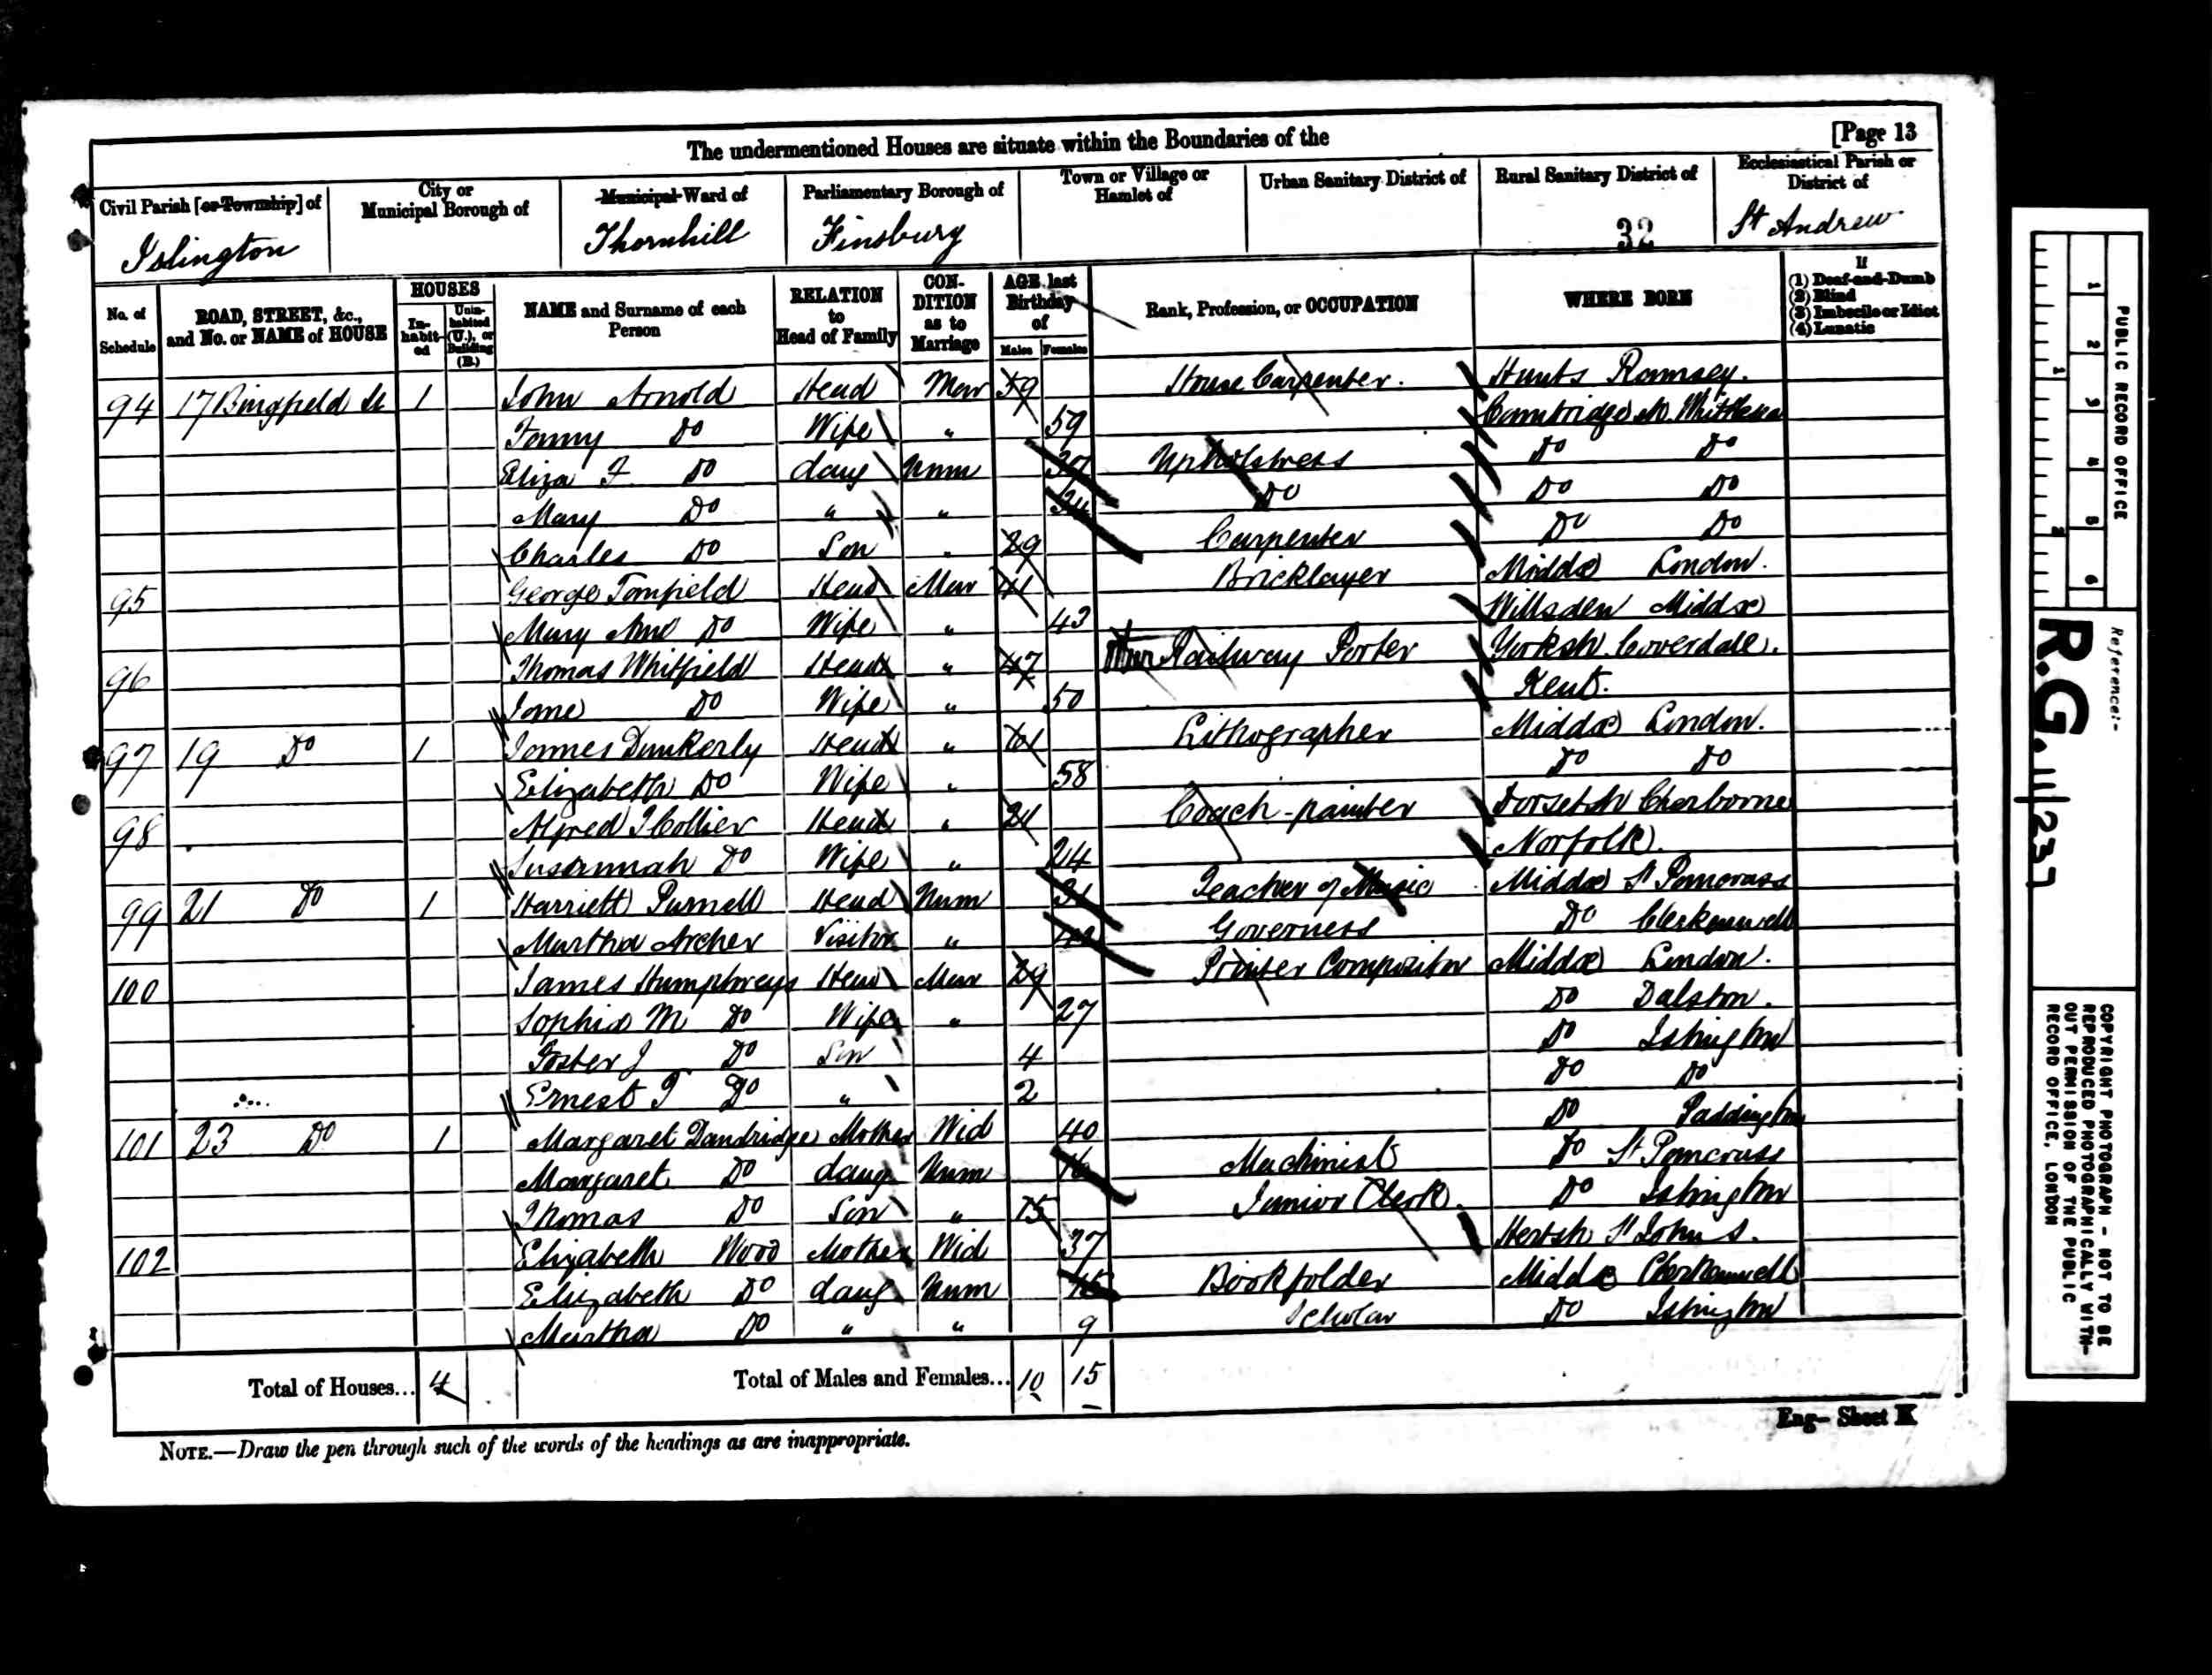 [Page 13
The undermentioned Houses are situate within the Boundaries of the
Civil Parish [or Township] of
City or Municipal Borough of
Municipal Ward of
Parliamentary Borough of
Town or Village or Hamlet of
Urban Sanitary District of
Rural Sanitary District of
Ecclesiastical Parish or District of
Islington Thornhill Finsbury 32 St Andrew
No. of Schedule
ROAD, STREET, &c., and No. or NAME of HOUSE
HOUSES
In-habit-ed
Unin-habited (U.), or Building (B.)
NAME and Surname of each Person
RELATION to Head of Family
CON-DITION as to Marriage
AGE last Birthday of
Males Females
Rank, Profession, or OCCUPATION
WHERE BORN
If
(1) Deaf-and-Dumb
(2) Blind
(3) Imbecile or Idiot
(4) Lunatic
94 17 Bingfield St 1 John Arnold Head Mar 59 House Carpenter. Hunts Ramsey.
Fanny Do Wife " 59 Cambridge
Eliza F Do daug Unm Upholstress Do Do
Mary Do " " 34 Do Do Do
Charles Do Son " 29 Carpenter Do Do
95 George Head Mar 41 Bricklayer Middx London.
Mary Ann Do Wife " 43 Willsden Middx
96 Thomas Whitfield Head " 47 Railway Porter Yorksh. Coverdale.
Jane Do Wife " 50 Kent.
97 19 Do 1 James Dunkerly Head " 61 Lithographer Middx London.
Elizabeth Do Wife " 58 Do Do
98 Alfred J Collier Head " Coach-painter Dorsetsh Cherborne
Susannah Do Wife " 24 Norfolk.
99 21 Do 1 Harriett Purnell Head Unm 31 Teacher of Music Middx St Pancrass
Martha Archer Visitor " Governess Do Clerkenwell
100 James Humphreys Head Mar 29 Printer Compositor Middx London.
Sophia M Do Wife " 27 Do Dalston.
Foster J Do Son 4 Do Islington
Ernest T Do " 2 Do Do
101 23 Do 1 Margaret Dandridge Mother Wid 40 Do Paddington
Margaret Do daug Unm 16 Machinist Do St Pancrass
Thomas Do Son " 15 Junior Clerk. Do Islington
102 Elizabeth Wood Mother Wid 37 Hertsh St Johns.
Elizabeth Do daug Unm 15 Bookfolder Middx Clerkenwell
Martha Do " " 9 Scholar Do Islington
Total of Houses... 4 Total of Males and Females... 10 15
Eng— Sheet K
NOTE.—Draw the pen through such of the words of the headings as are inappropriate.
1 2 3 4 5 6
1 2
PUBLIC RECORD OFFICE
Reference:-
R.G. 11/237
COPYRIGHT PHOTOGRAPH - NOT TO BE
REPRODUCED PHOTOGRAPHICALLY WITH-
OUT PERMISSION OF THE PUBLIC
RECORD OFFICE, LONDON